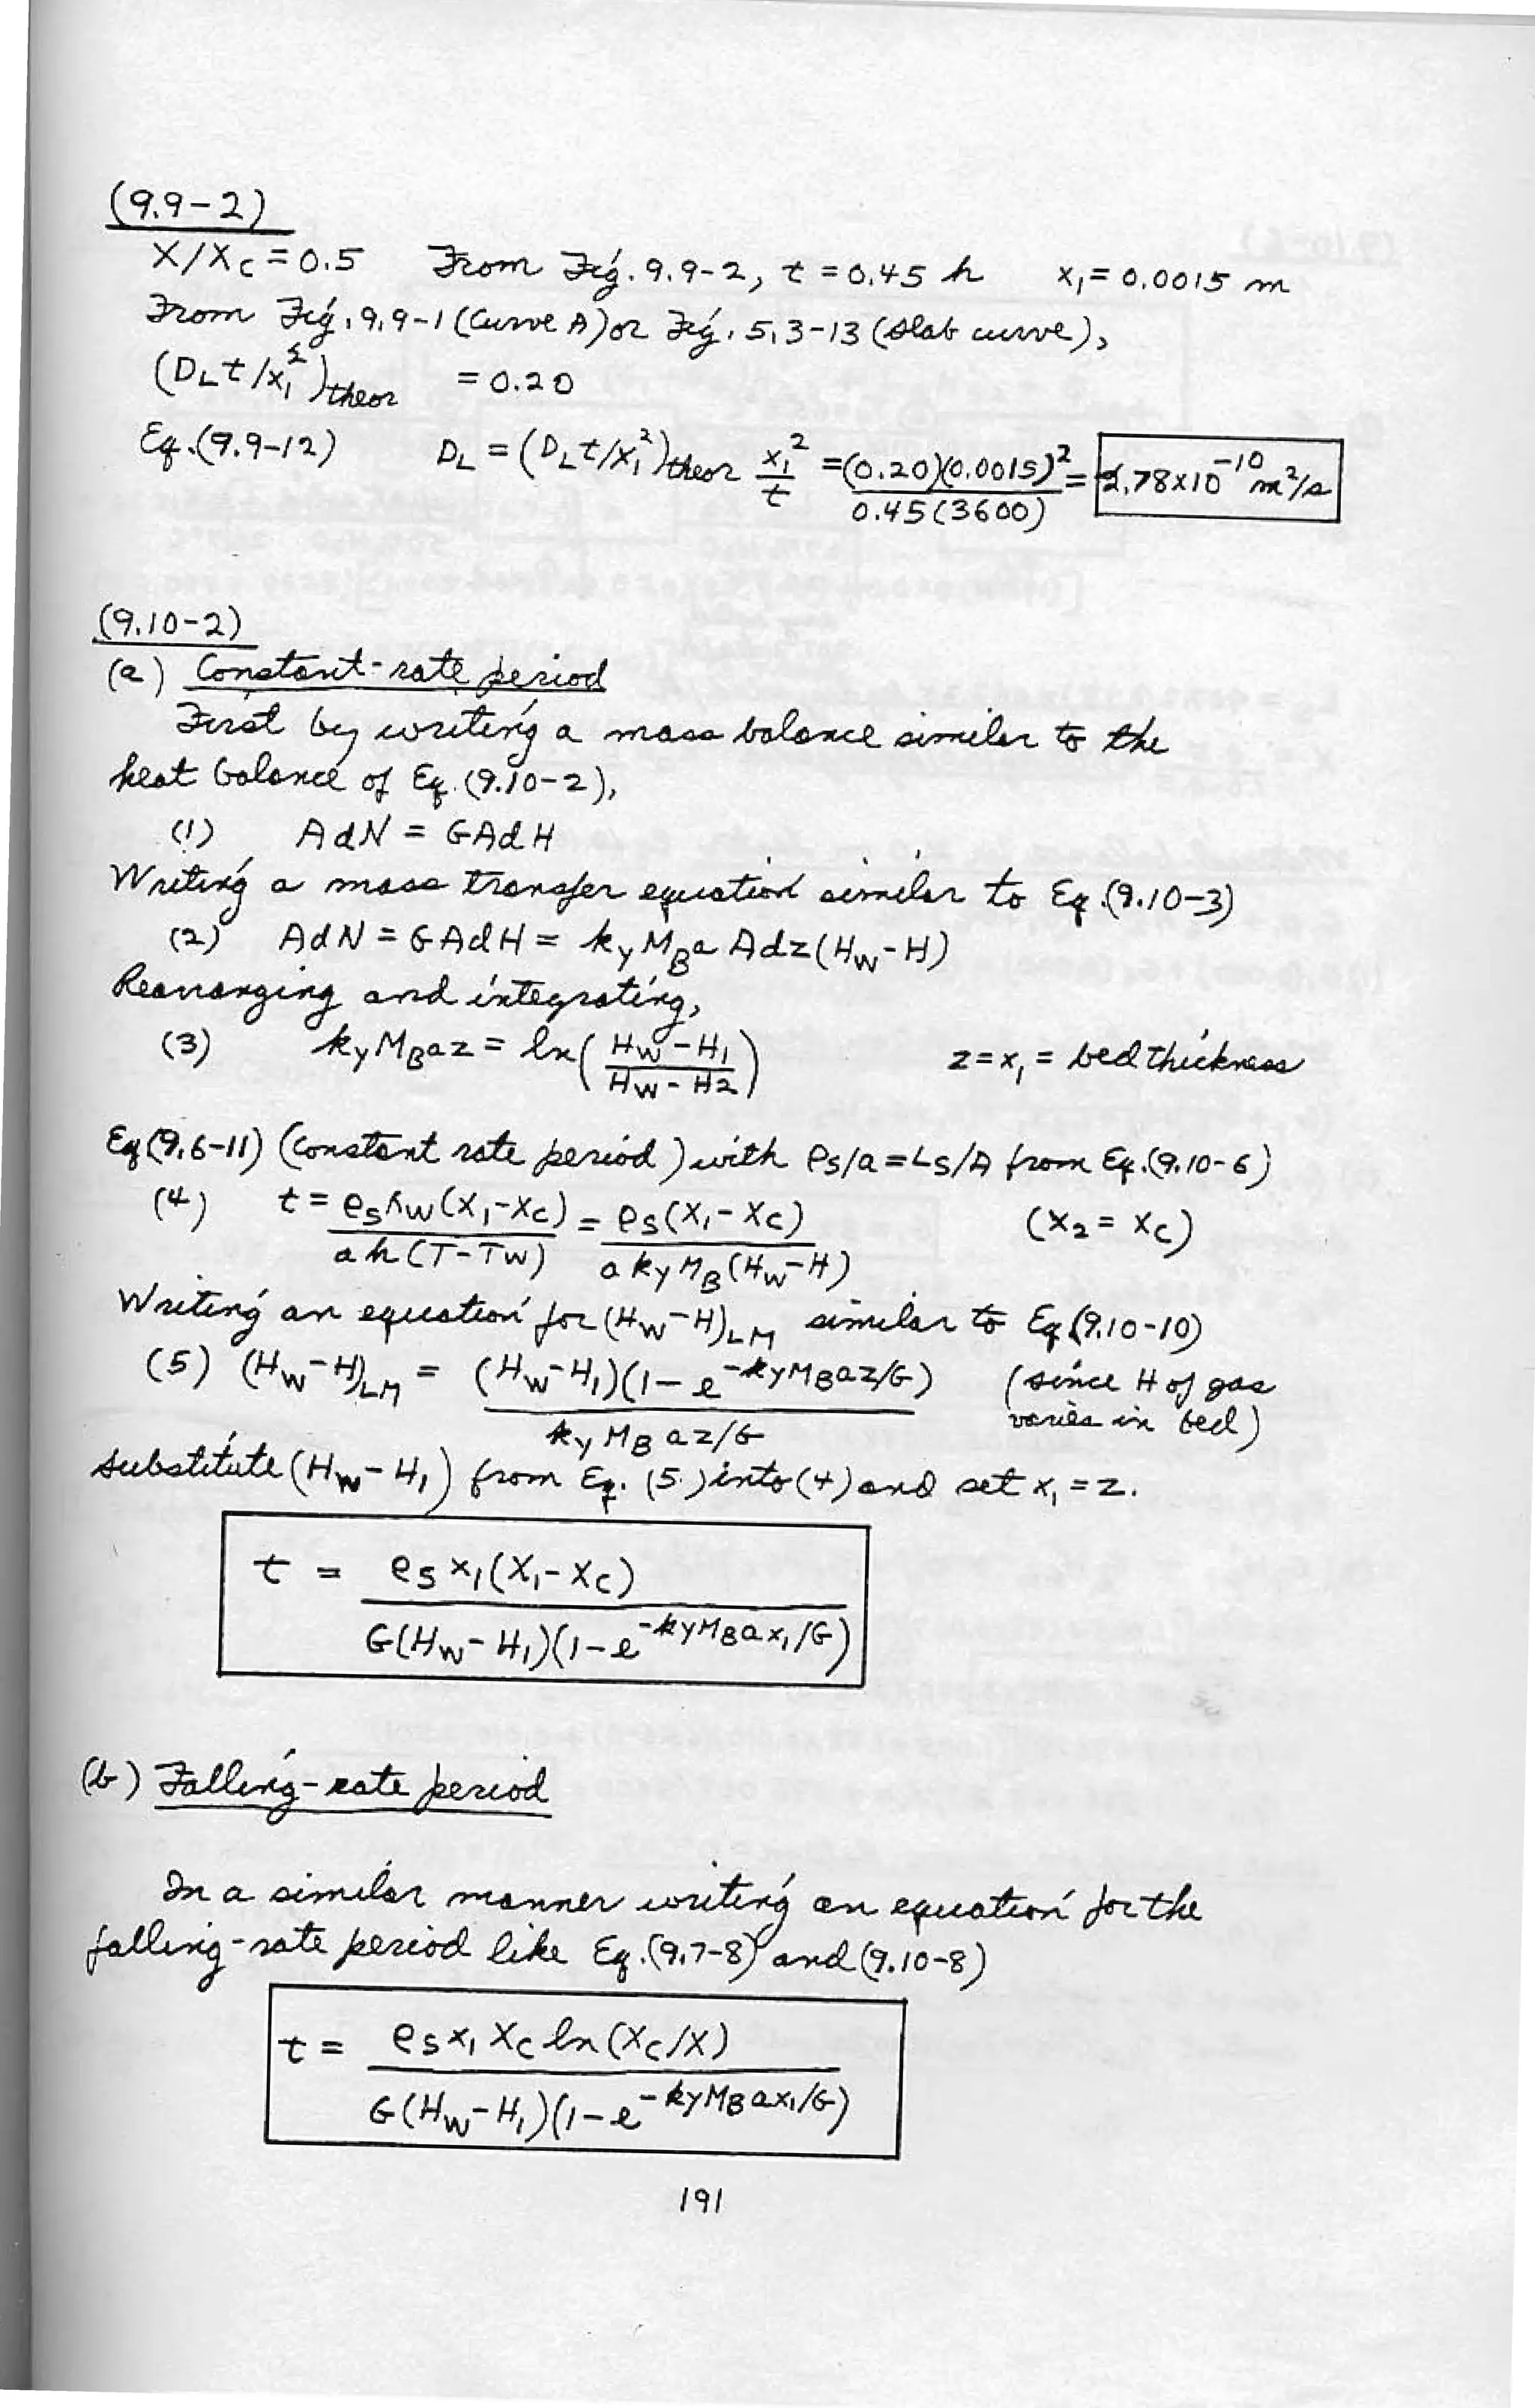 (9.9-2)
X/Xc = 0.5 From Fig. 9.9-2, t = 0.45 h x₁ = 0.0015 m
From Fig. 9.9-1 (Curve A) or Fig. 5.3-13 (slab curve),
(D_L t/x₁²)theor = 0.20
Eq. (9.9-12) D_L = (D_L t/x₁²)theor x₁²/t = (0.20)(0.0015)²/0.45(3600) = 2.78x10⁻¹⁰ m²/s
(9.10-2)
(a) Constant-rate period
First by writing a mass balance similar to the
heat balance of Eq. (9.10-2),
(1) AdN = GAdH
Writing a mass transfer equation similar to Eq. (9.10-3)
(2) AdN = GAdH = k_y M_B a Adz(H_W - H)
Rearranging and integrating,
(3) k_y M_B a z = ln((H_W - H₁)/(H_W - H2)) z = x₁ = bed thickness
Eq (9.6-11) (constant rate period) with ρs/a = Ls/A from Eq. (9.10-6)
(4) t = ρs λw(X₁ - Xc)/ah(T - Tw) = ρs(X₁ - Xc)/a k_y M_B(H_W - H) (X₂ = Xc)
Writing an equation for (H_W - H)_LM similar to Eq. (9.10-10)
(5) (H_W - H)_LM = (H_W - H₁)(1 - e^(-k_y M_B a z/G))/(k_y M_B a z/G) (since H of gas
varies in bed)
Substitute (H_W - H₁) from Eq. (5) into (4) and set x₁ = z.
t = ρs x₁(X₁ - Xc)/G(H_W - H₁)(1 - e^(-k_y M_B a x₁/G))
(b) Falling-rate period
In a similar manner writing an equation for the
falling-rate period like Eq. (9.7-8) and (9.10-8)
t = ρs x₁ Xc ln(Xc/X)/G(H_W - H₁)(1 - e^(-k_y M_B a x₁/G))
191